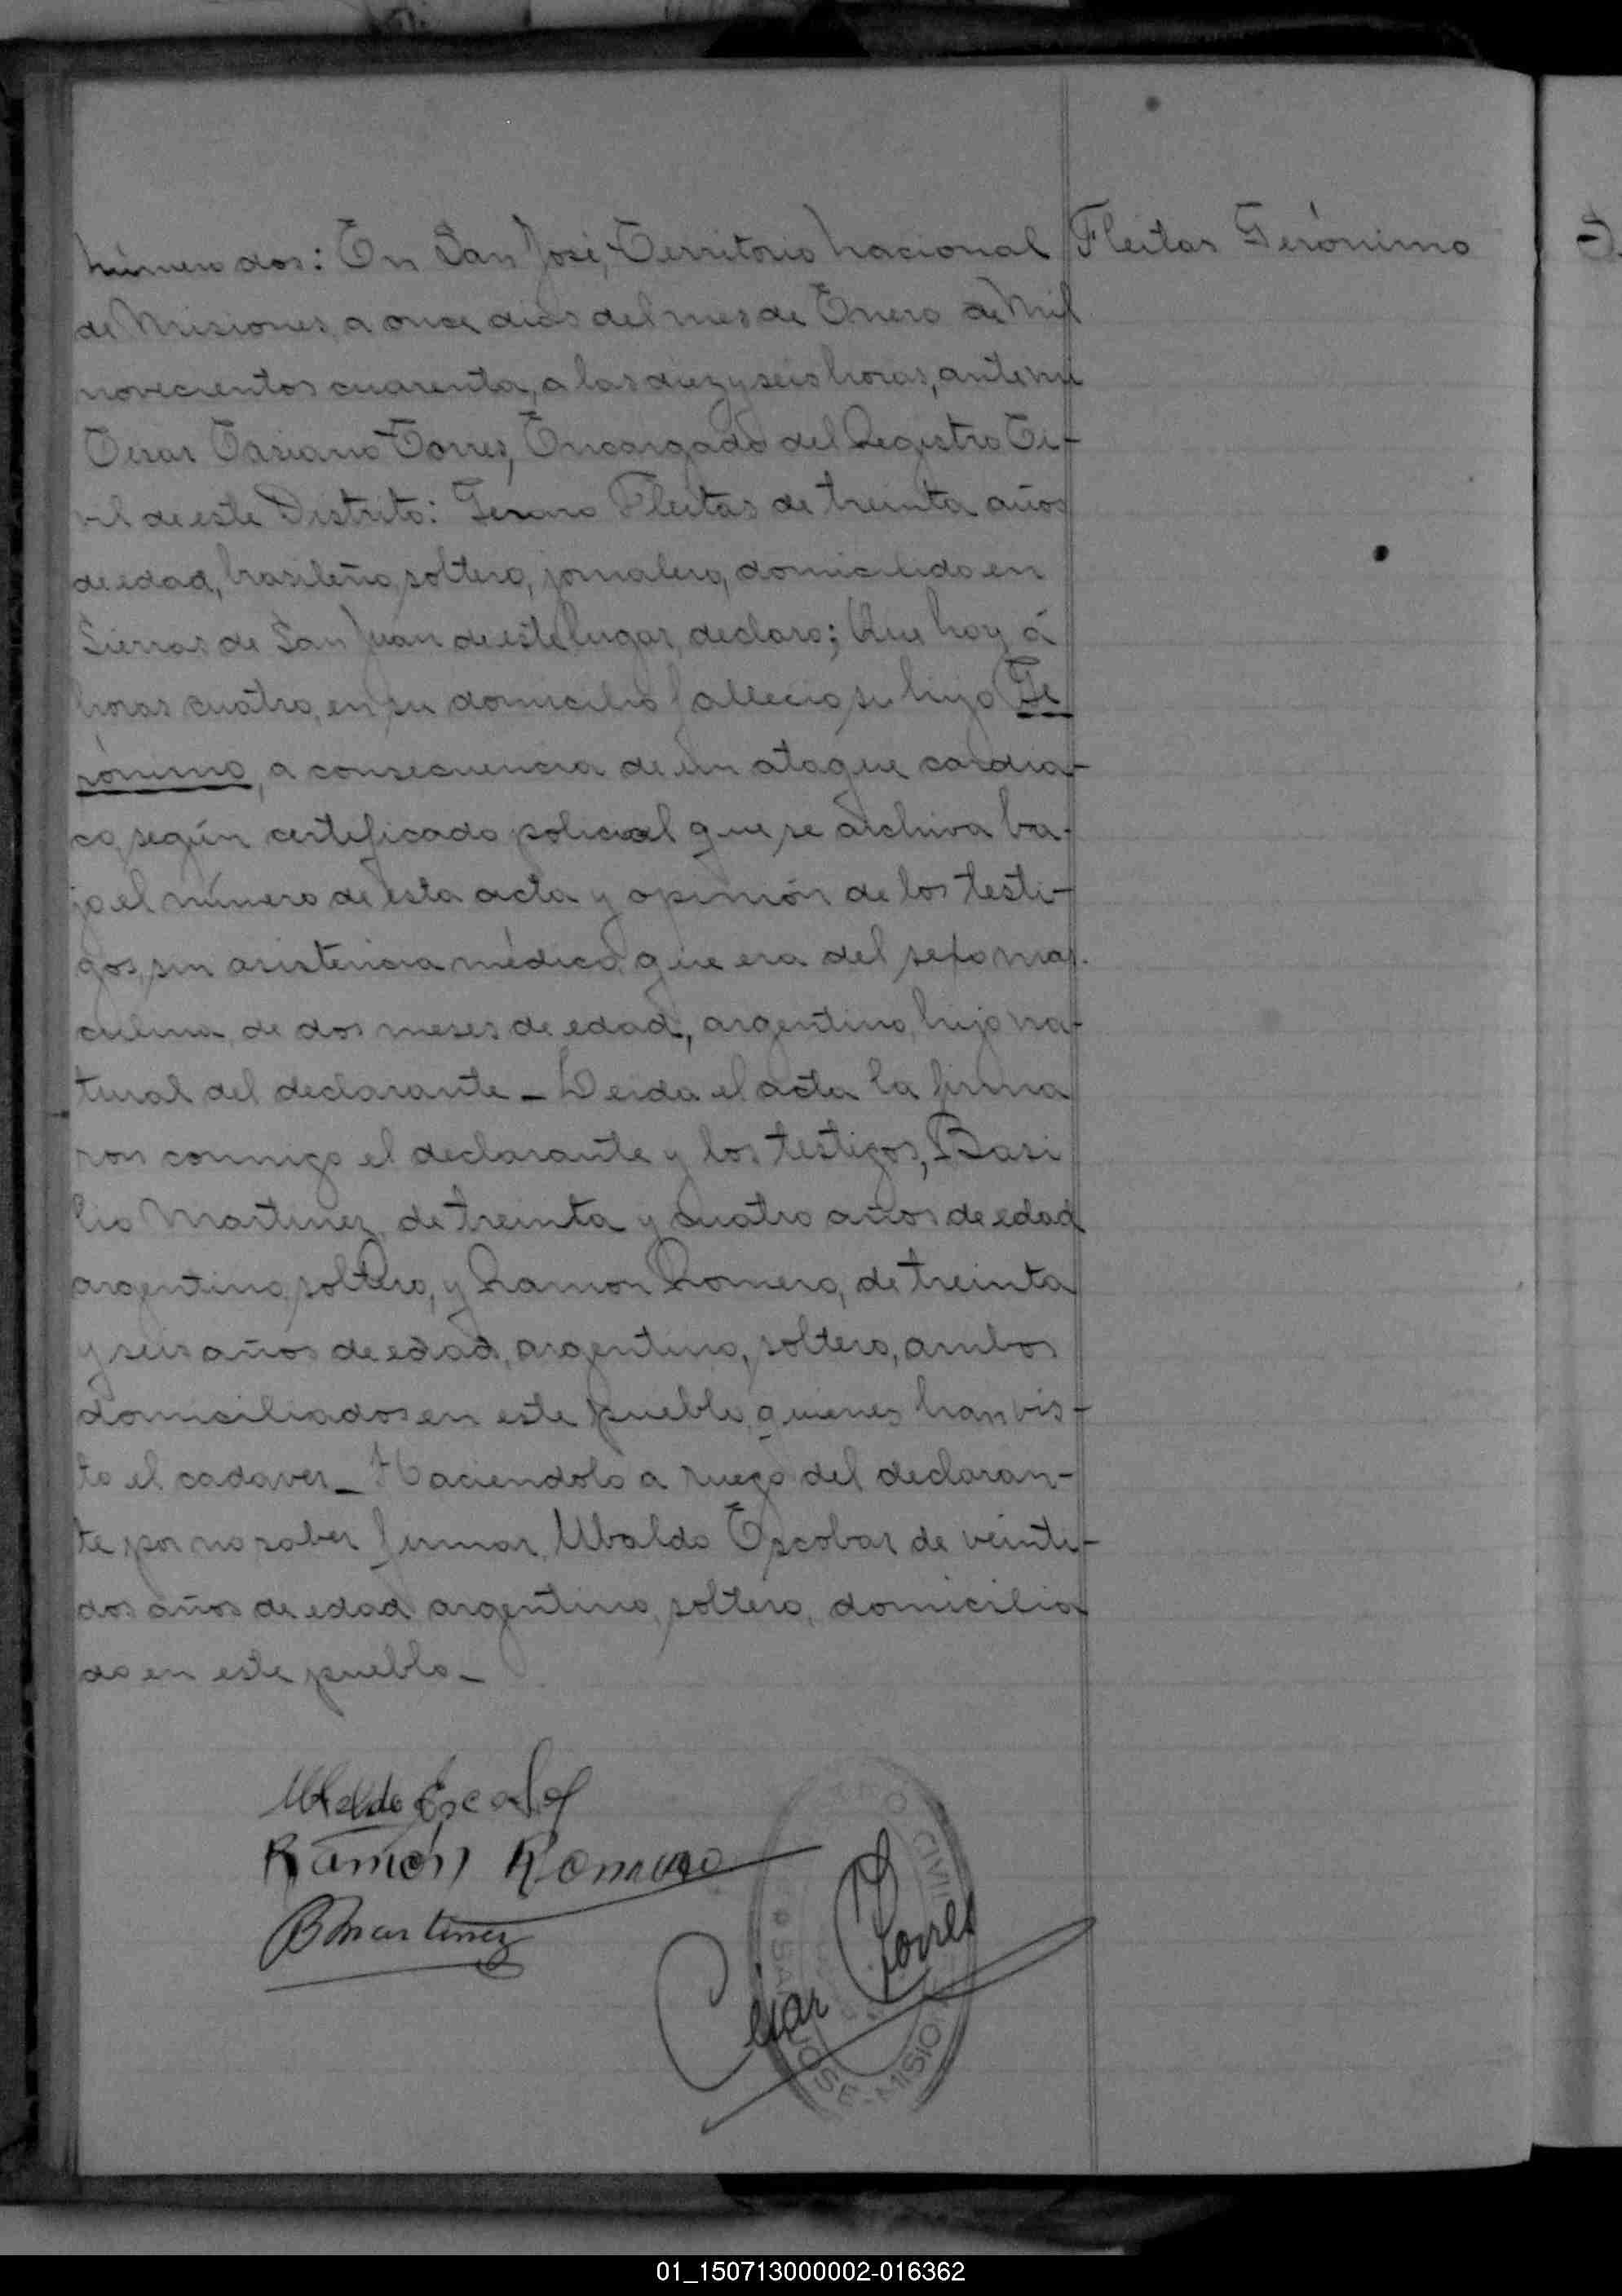 Fleitas Gerónimo
Número dos: En San José, Territorio Nacional
de Misiones, a once dias del mes de Enero de Mil
novecientos cuarenta, a las diez y seis horas, ante mi
Cesar Torres, Encargado del Registro Ci-
vil de este Distrito: Fleitas de treinta años
de edad, brasileño, soltero, jornalero, domiciliado en
Sierras de San Juan de este lugar, declaro; Que hoy á
horas cuatro, en su domicilio fallecio su hijo Ge
rónimo, a consecuencia de un ataque cardia-
co, según certificado policial que se archiva ba-
jo el número de esta acta y opinión de los testi-
gos, sin asistencia médica, que era del sexo mas-
culino, de dos meses de edad, argentino, hijo na-
tural del declarante - Leida el acta la firma
ron conmigo el declarante y los testigos, Basi
lio Martinez, de treinta y cuatro años de edad
argentino, soltero, y Ramon Romero, de treinta
y seis años de edad, argentino, soltero, ambos
domiciliados en este pueblo, quienes han vis-
to el cadaver - Haciendolo a ruego del declaran-
te por no saber firmar, Ubaldo Escobar de veinti-
dos años de edad argentino, soltero, domicilia
do en este pueblo -
Ubaldo Escobar
Ramón Romero
B Martinez
Cesar Torres
CIVIL
SAN JOSE - MISIONES
01_150713000002-016362